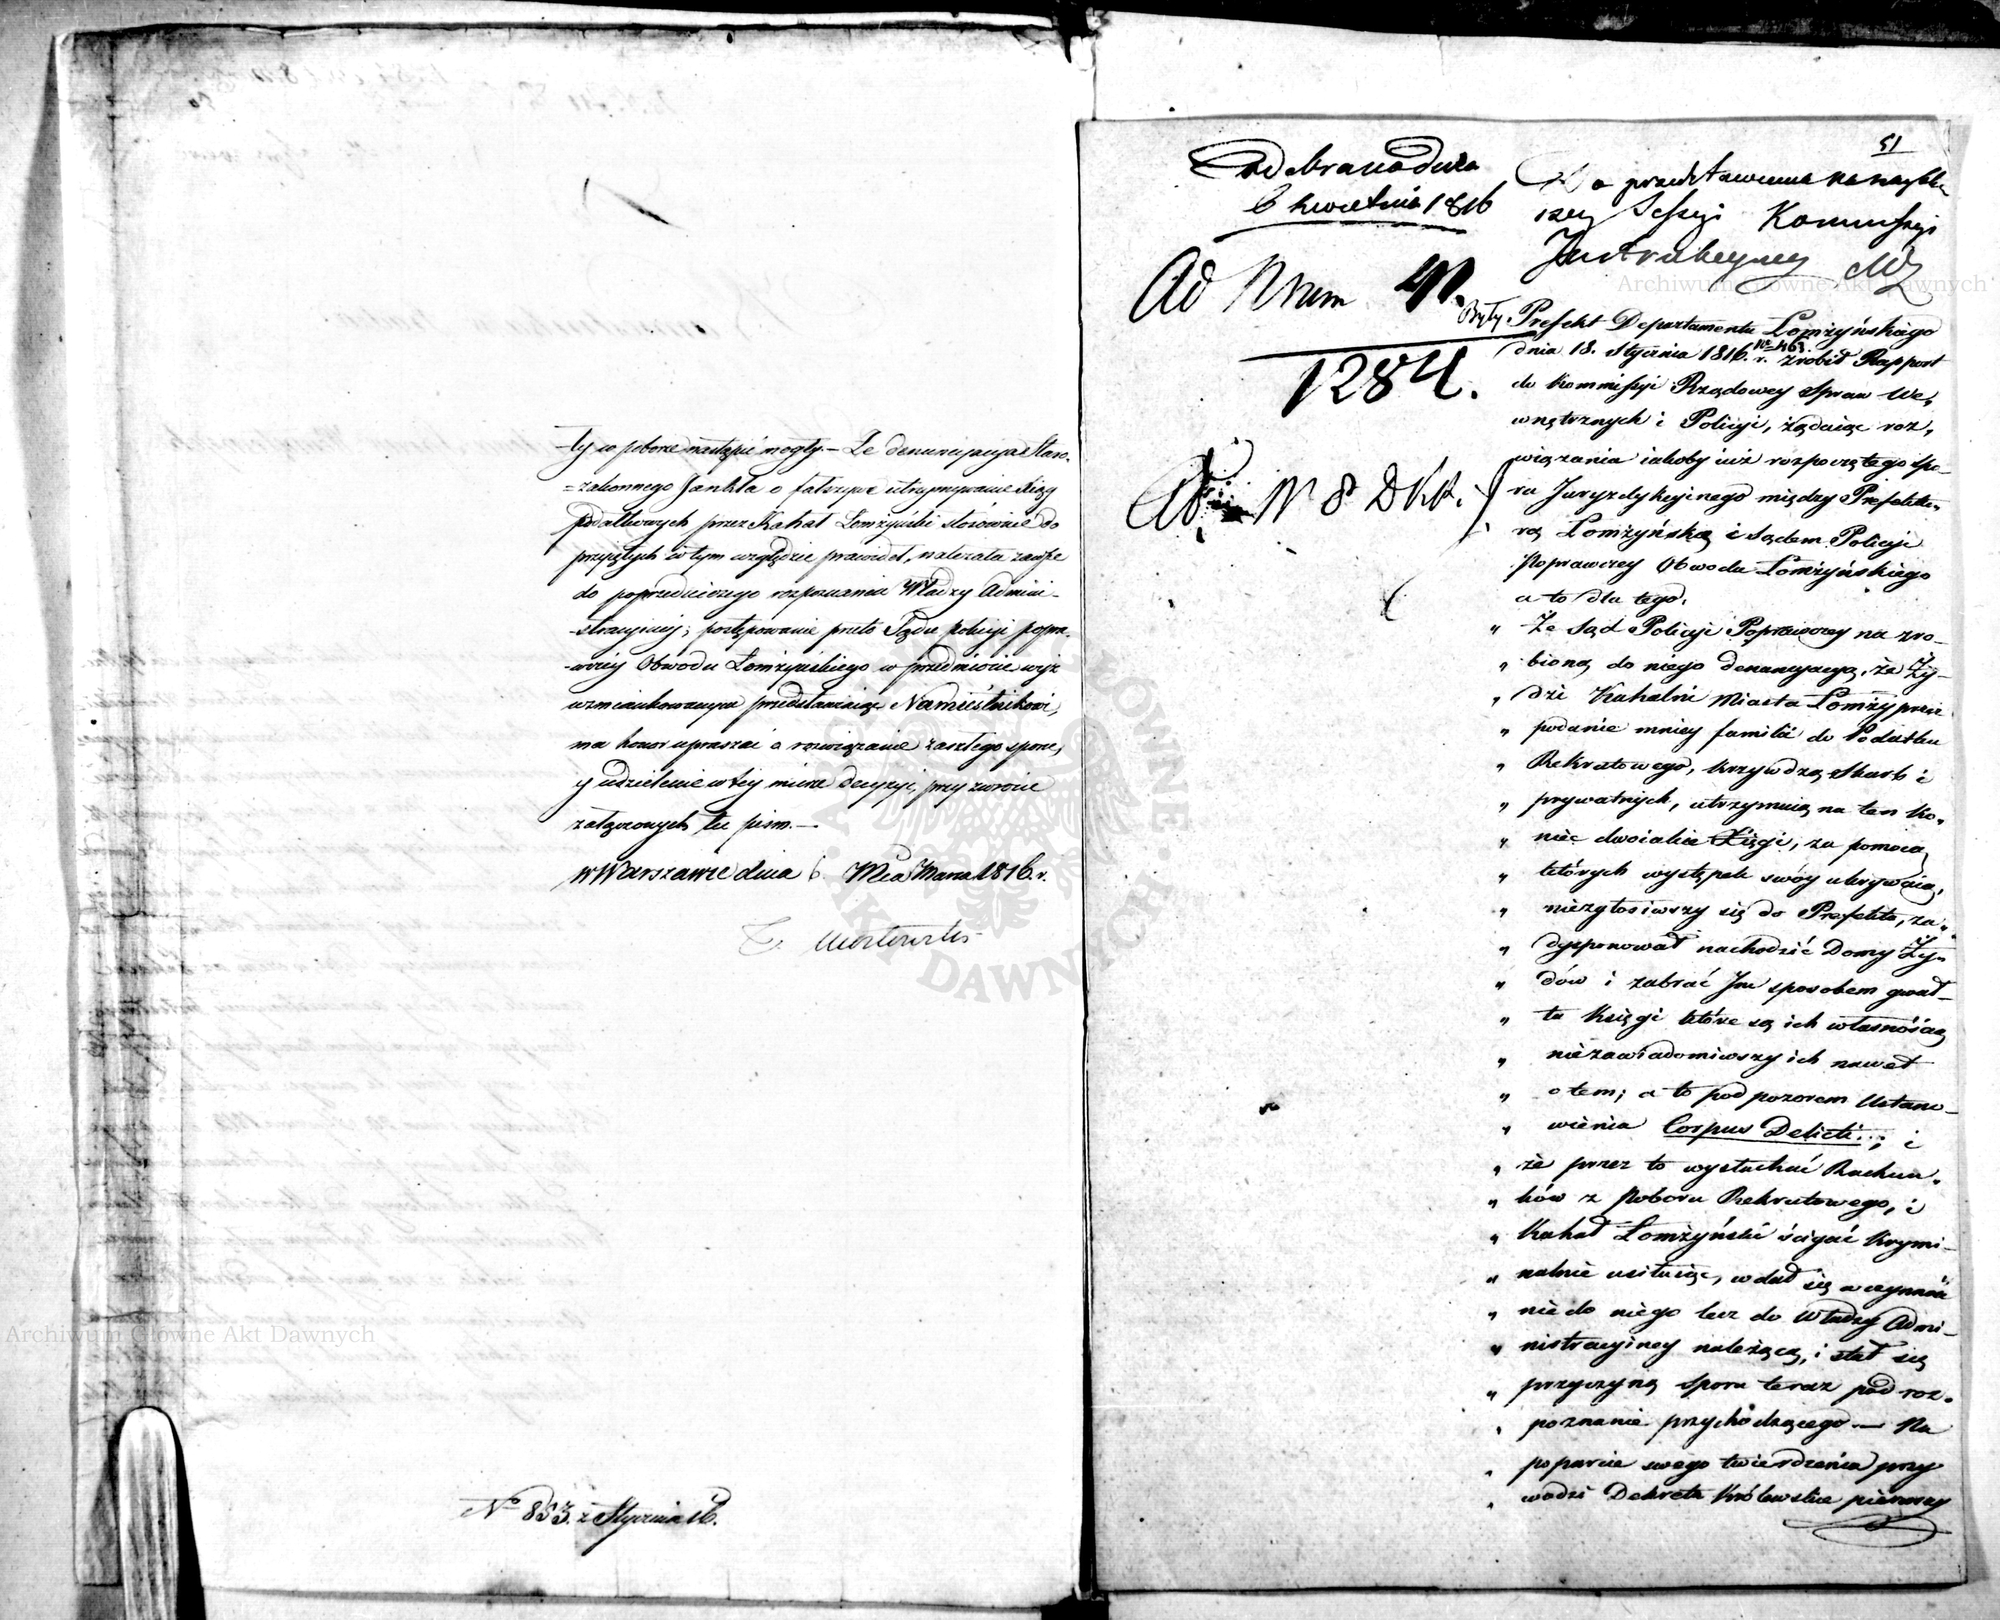 ty w poborze nastąpić mogły. – Ze denuncyacyia Staro-
=zakonnego Jankla o fałszywe utrzymywanie Xiąg
podatkowych przez Kahał Łomżyński stosownie do
przyiętych w tym względzie prawideł, należała zawsze
do poprzedniczego rozpoznania Władzy Admini-
-stracyiney; postępowanie przeto Sądu policyi popra-
-wczey Obwodu Łomżyńskiego w przedmiocie wyż
wzmiankowanym przedstawiaiąc Namiestnikowi,
ma honor upraszać o rozwiązanie zaszłego sporu,
y udzielenie w tey mierze decyzyi, przy zwrocie
załączonych tu pism. —
w Warszawie dnia 6. Mca Marca 1816. r.
T. Mostowski
No 853. z Stycznia 16.
51
Odebrano dnia
6 kwietnia 1816
Do przedstawienia na naybliż-
szey Sessyi Kommissyi
Instrukcyiney
Ad Nrum 41.
1284.
Ad N 8 DKK.
Były Prefekt Departamentu Łomżyńskiego
dnia 18. Stycznia 1816. r. No 463. zrobił Rapport
do Kommissyi Rządowey Spraw We,
wnętrznych i Policyi, żądaiąc roz,
wiązania iakoby iuż rozpoczętego Spo-
ru Juryzdykcyinego między Prefektu,
rą Łomżyńską i Sądem Policyi
Poprawczey Obwodu Łomżyńskiego
a to dla tego.
" Że Sąd Policyi Poprawczey na zro-
" bioną do niego denuncyacyą, że Ży-
" dzi Kahalni Miasta Łomży przez
" podanie mniey familii do Podatku
" Rekrutowego, krzywdzą Skarb i
" prywatnych, utrzymuią na ten ko,
" niec dwoiakie Xięgi, za pomocą
" których występek swóy ukrywaią,
" niezgłosiwszy się do Prefekta, za-
" dysponował nachodzić Domy Ży,
" dów i zabrać Im sposobem gwał-
" tu Księgi które są ich własnością
" niezawiadomiwszy ich nawet
" o tem; a to pod pozorem Ustano-
" wienia Corpus Delicti..; i
" że przez to wysłuchać Rachun,
" ków z Poboru Rekrutowego, i
" Kahał Łomżyński ścigać krymi-
" nalnie usiłuiąc, wdał się w czynność
" nie do niego lecz do Władzy Admi-
" nistracyiney należącą, i stał się
" przyczyną sporu teraz pod roz,
" poznanie przychodzącego — Na
" poparcie swego twierdzenia przy
" wodzi Dekreta Królewskie pierwszy
Archiwum Główne Akt Dawnych
Archiwum Główne Akt Dawnych